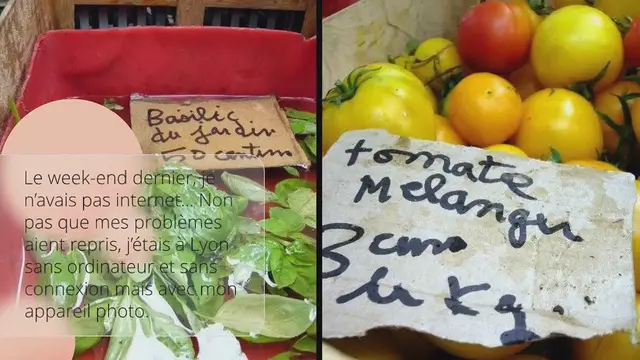 Basilic
du jardin
50 centims
Le week-end dernier, je
n'avais pas internet... Non
pas que mes problèmes
aient repris, j'étais à Lyon
sans ordinateur et sans
connexion mais avec mon
appareil photo.
tomate
Melanger
3 euros
le kg